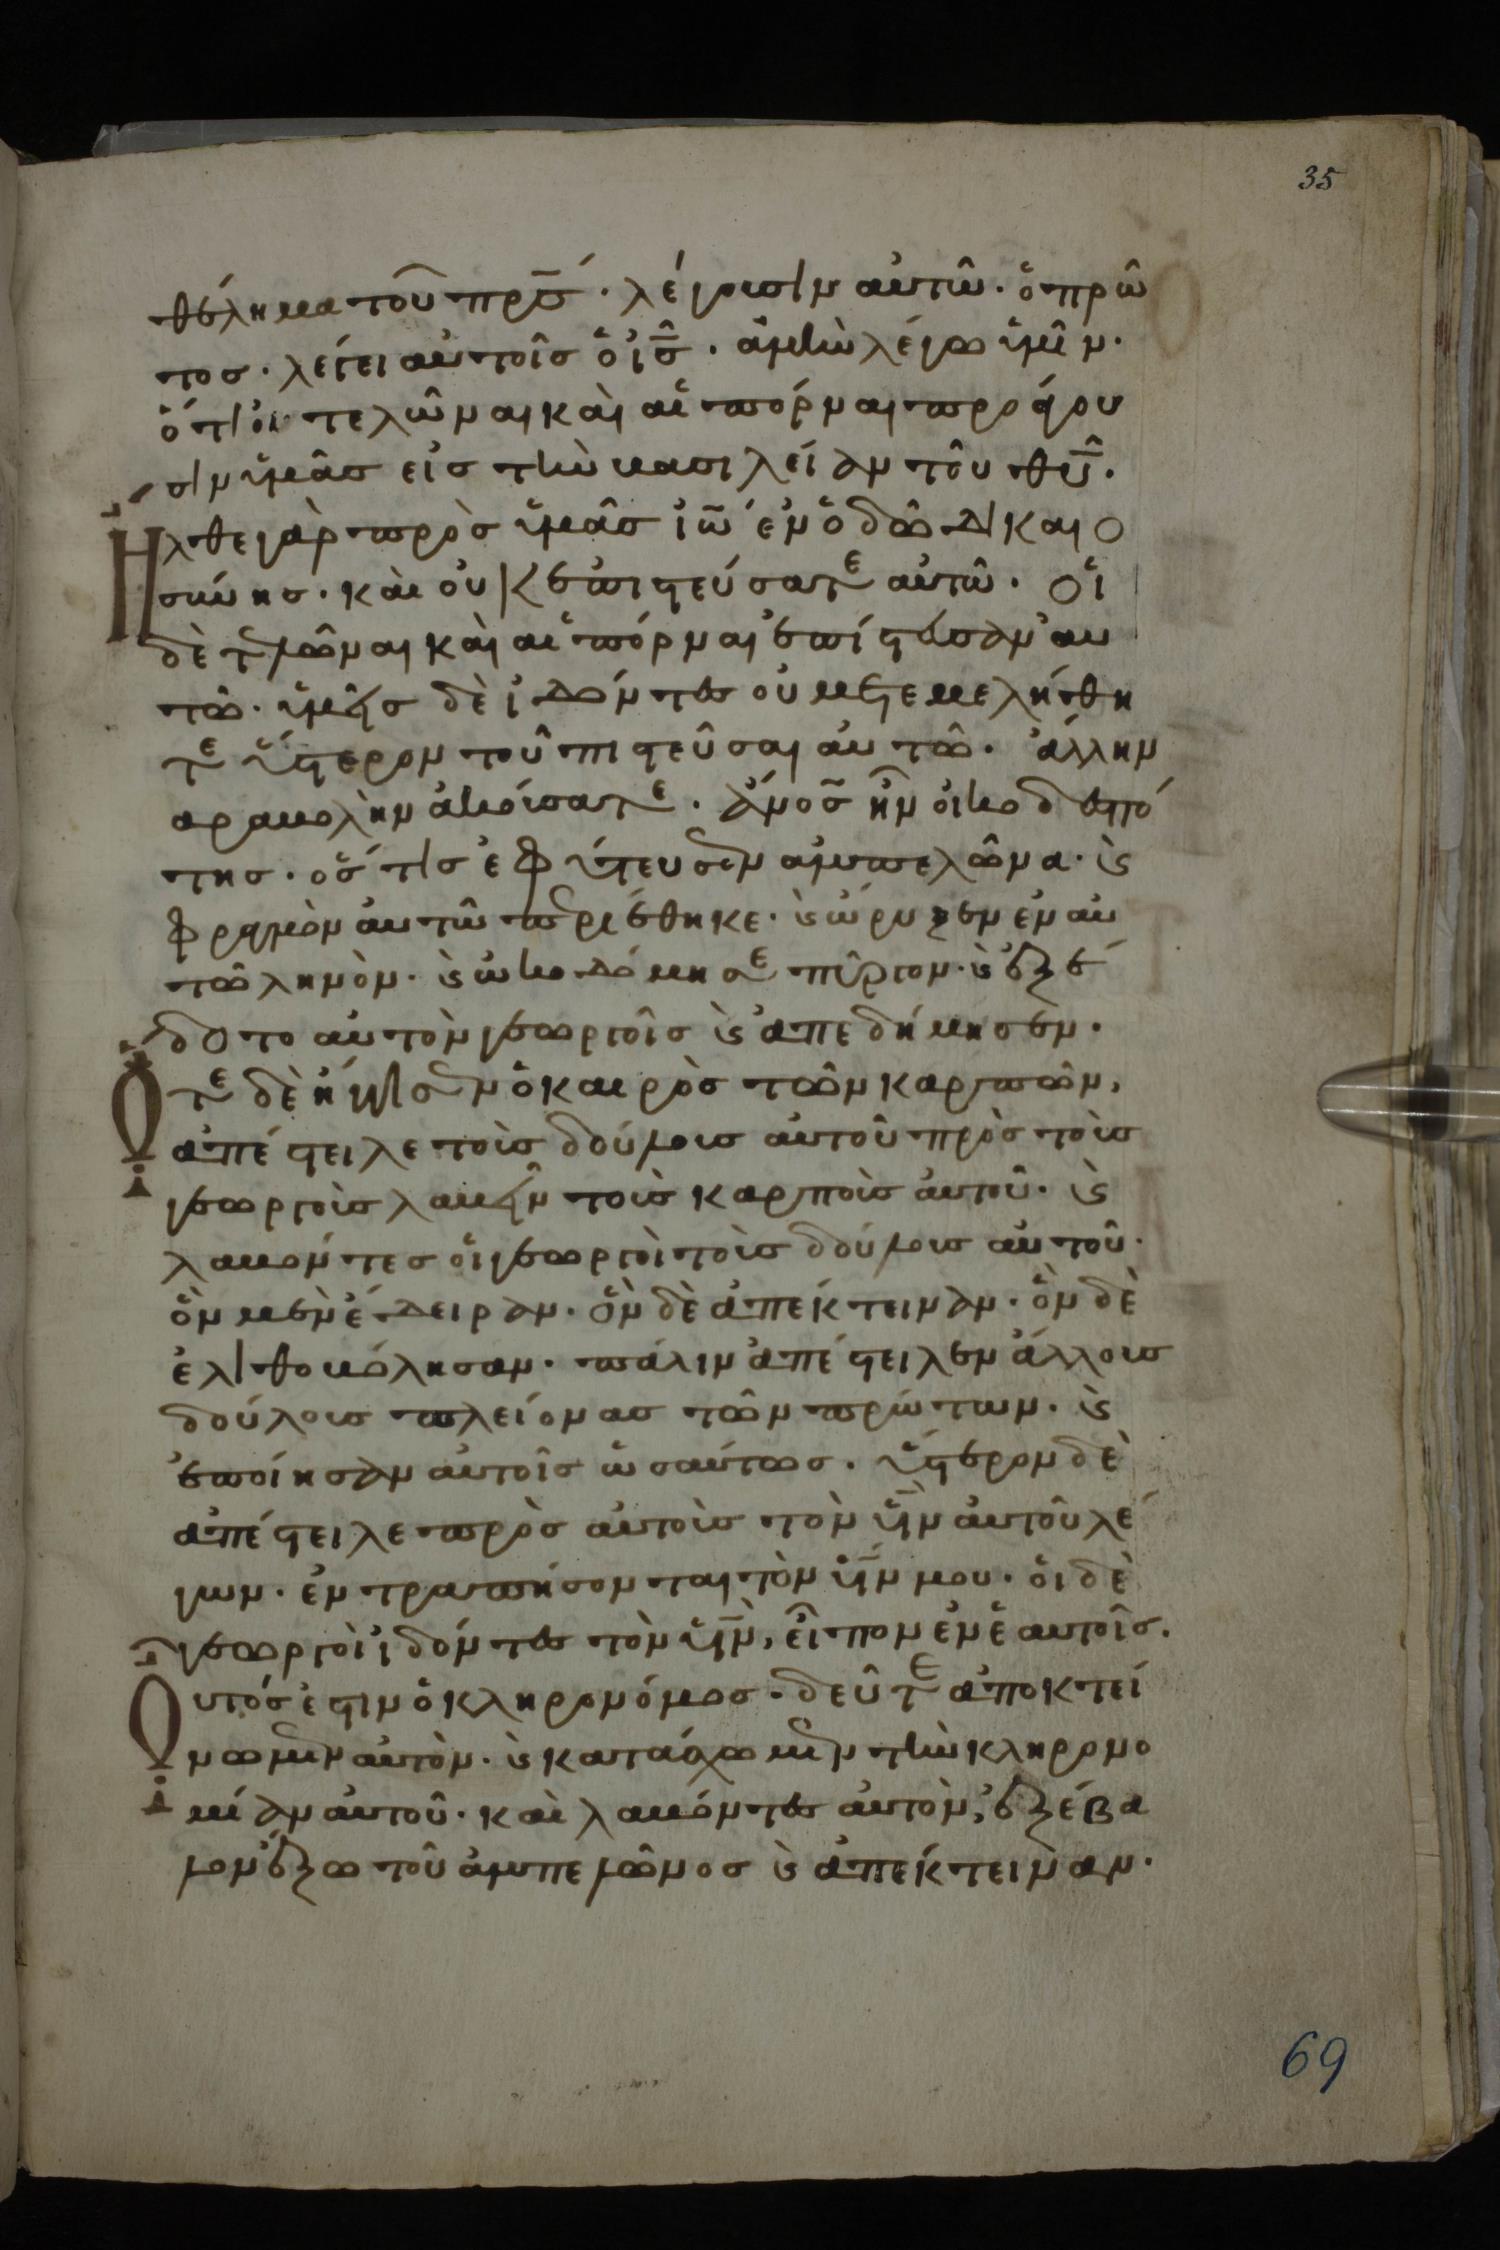 35
θέλημα τοῦ πρ̅σ. λέγουσιν αὐτῶ. ὁ πρῶ
τος. λέγει αὐτοῖς ὁ ι̅ς̅. ἀμὴν λέγω ὑμῖν.
ὅτι οἱ τελῶναι καὶ αἱ πόρναι προάγου
σιν ὑμᾶς εἰς τὴν βασιλείαν τοῦ θ̅υ̅.
Ἦλθε γὰρ πρὸς ὑμᾶς ἰω̅ ἐν ὁδῶ δικαιο
σύνης. καὶ οὐκ ἐπιστεύσατε αὐτῶ. οἱ
δὲ τελῶναι καὶ αἱ πόρναι ἐπίστευσαν αὐ
τῶ. ὑμεῖς δὲ ἰδόντες οὐ μετεμελήθη
τε ὕστερον τοῦ πιστεῦσαι αὐτῶ. ἄλλην
παραβολὴν ἀκούσατε. ἄνο̅ς ἦν οἰκοδεσπό
της. ὅστις ἐφύτευσεν ἀμπελῶνα. κ̀
φραγμὸν αὐτῶ περιέθηκε. κ̀ ὤρυξεν ἐν αὐ
τῶ ληνὸν. κ̀ ὠκοδόμησε πύργον. κ̀ ἐξέ
δοτο αὐτὸν γεωργοῖς κ̀ ἀπεδήμησεν.
Ὅτε δὲ ἤγγισεν ὁ καιρὸς τῶν καρπῶν,
ἀπέστειλε τοὺς δούλους αὐτοῦ πρὸς τοὺς
γεωργοὺς λαβεῖν τοὺς καρποὺς αὐτοῦ. κ̀
λαβόντες οἱ γεωργοὶ τοὺς δούλους αὐτοῦ.
ὃν μὲν ἔδειραν. ὃν δὲ ἀπέκτειναν. ὃν δὲ
ἐλιθοβόλησαν. πάλιν ἀπέστειλεν ἄλλους
δούλους πλείονας τῶν πρώτων. κ̀
ἐποίησαν αὐτοῖς ὡσαύτως. ὕστερον δὲ
ἀπέστειλε πρὸς αὐτοὺς τὸν υ̅ι̅ν αὐτοῦ λέ
γων. ἐντραπήσονται τὸν υ̅ι̅ν μου. οἱ δὲ
γεωργοὶ ἰδόντες τὸν υ̅ι̅ν, εἶπον ἐν ἑαυτοῖς.
Οὗτός ἐστιν ὁ κληρονόμος. δεῦτε ἀποκτεί
νωμεν αὐτὸν. κ̀ κατάσχωμεν τὴν κληρονο
μίαν αὐτοῦ. καὶ λαβόντες αὐτὸν, ἐξέβα
λον ἔξω τοῦ ἀμπελῶνος κ̀ ἀπέκτειναν.
69